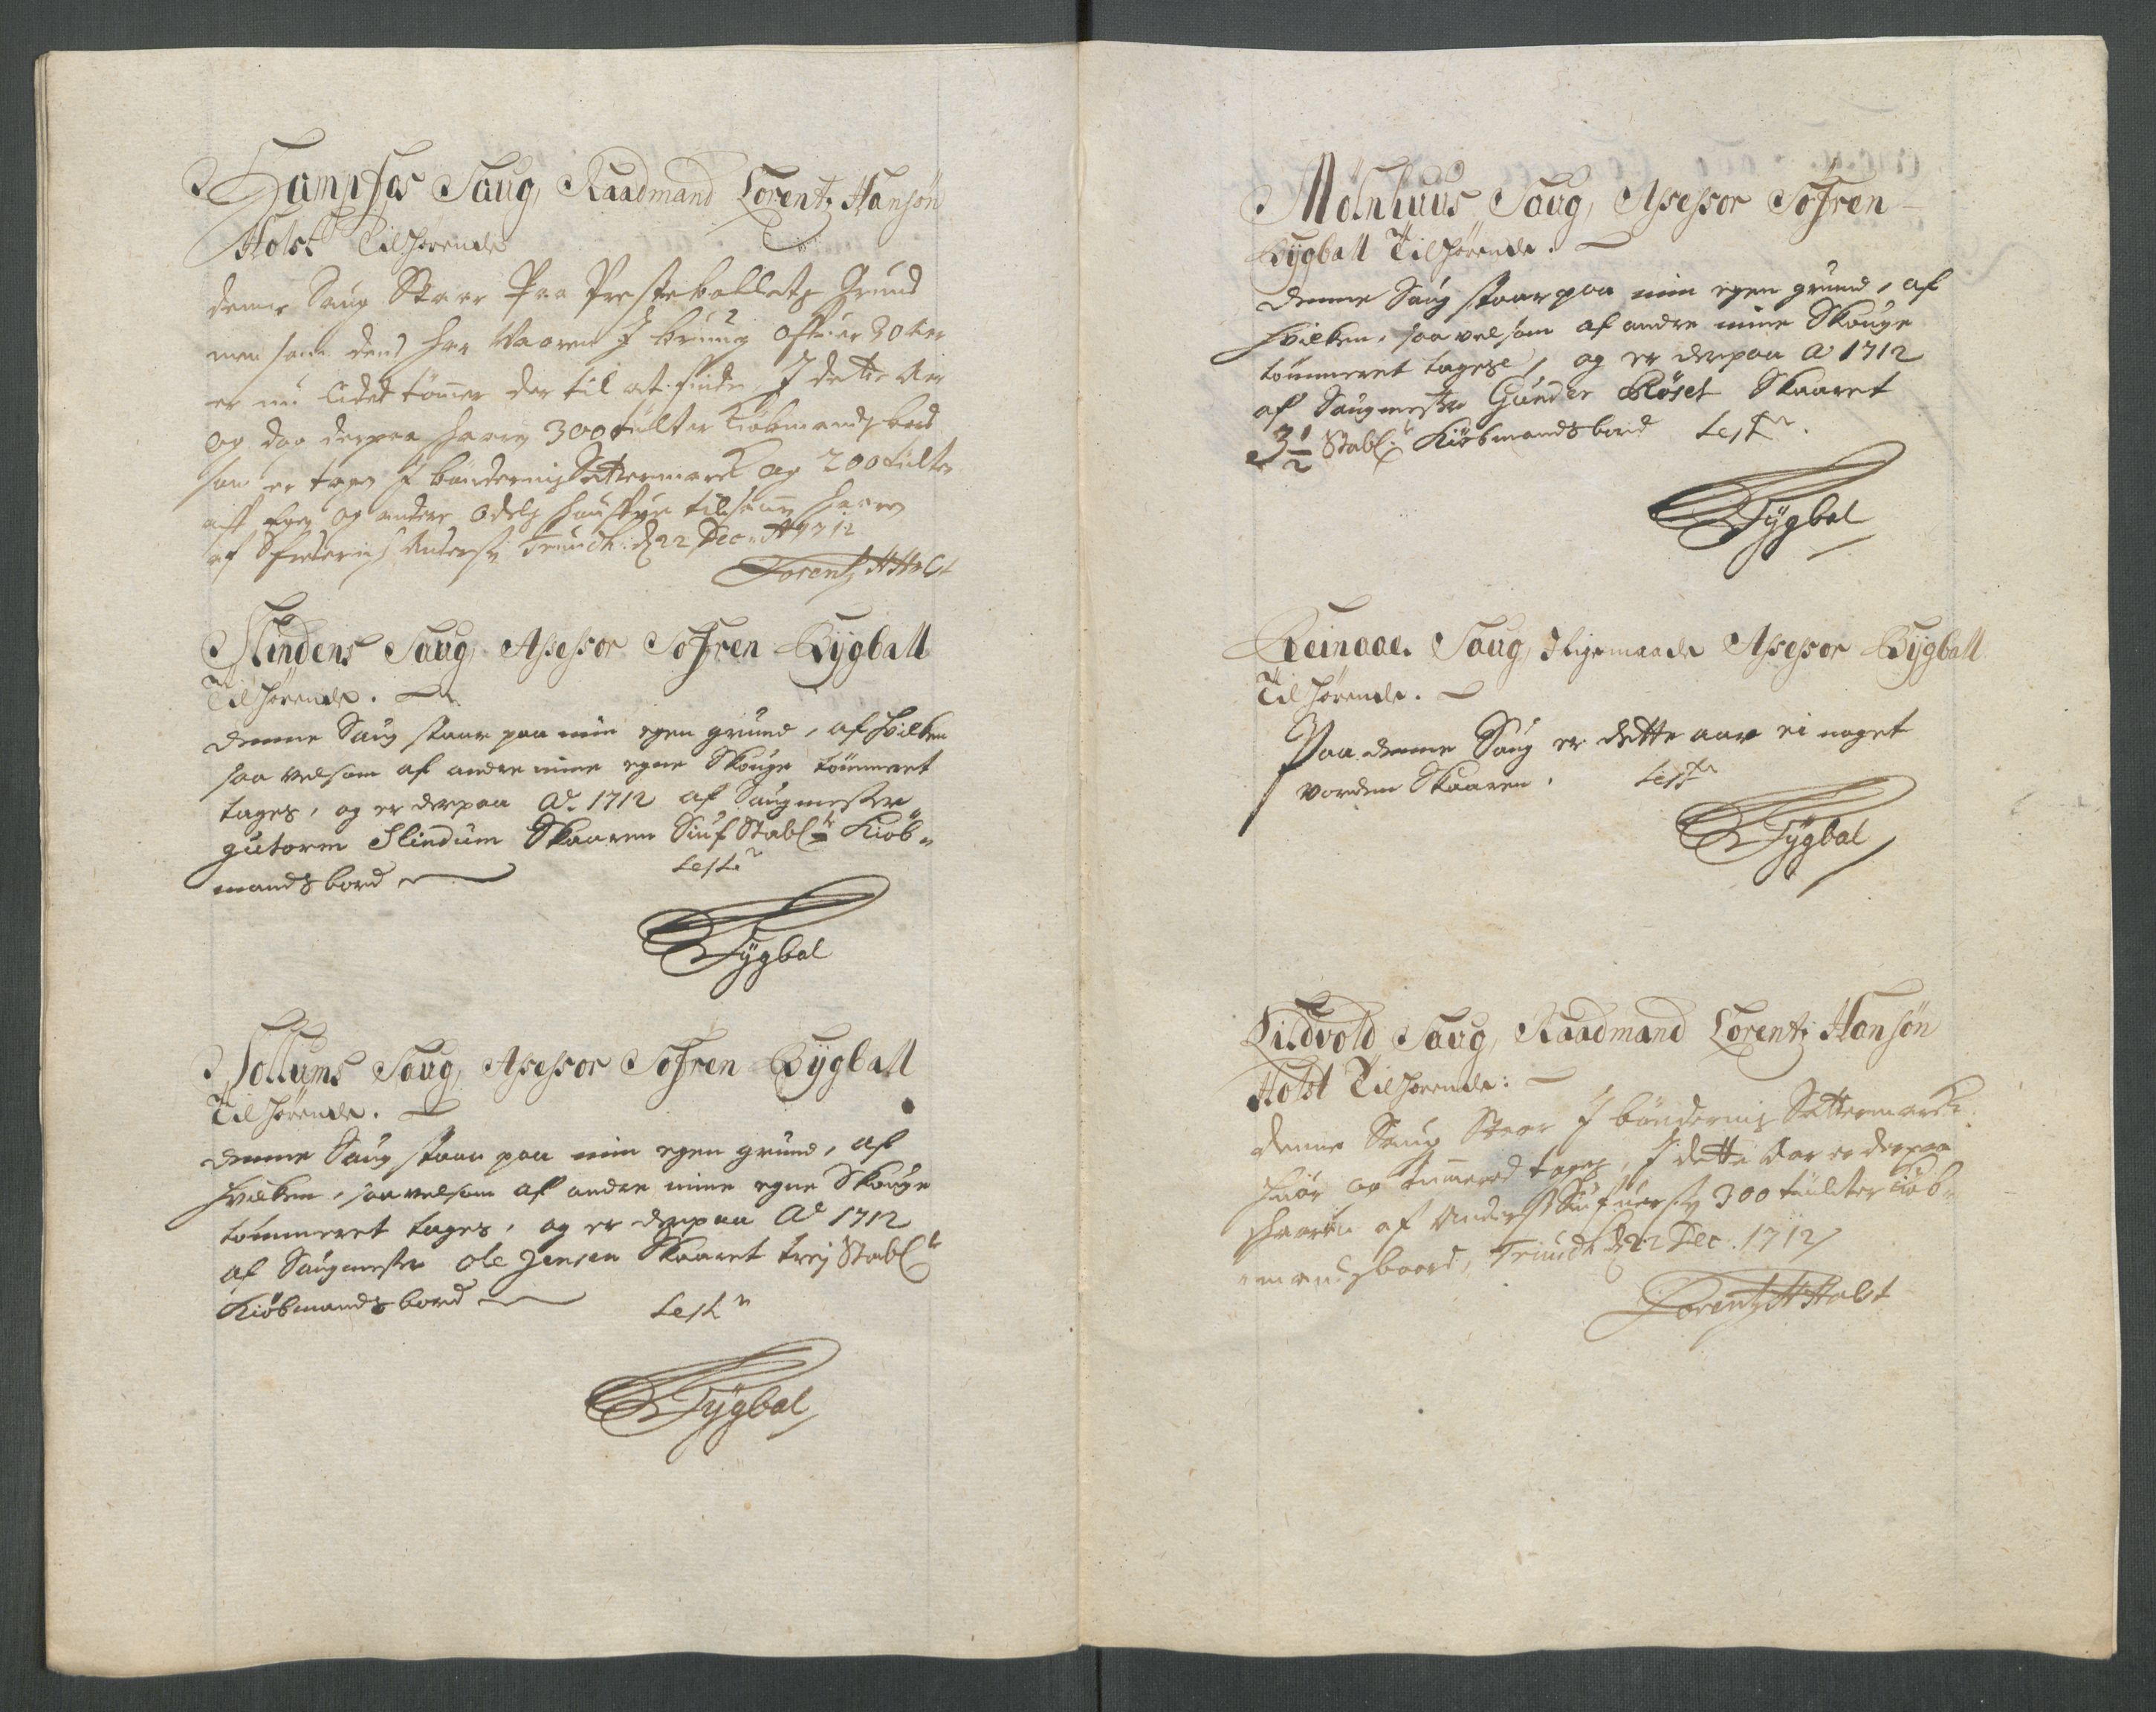 Hampfos Saug, Raadmand Lorentz Hansøn
Holst Tilhørende
denne Saug Staar Paa Prestebolletz Grund
men som dend har Vaaren J brüug offuer 30 Aar
er nu lidet tømer der til at finde, J dette Aar
og daa derpaa 300 tülter Kiöbmandz bord
som er tagen J böndernis Settermarck og 200 tülter
aff Egen og andere Odelz
af Anderss: Trundh: d 22 Dec: Ao 1712
Lorentz H Holst
Slindens Saug, Assessor Søfren Bÿgball
Tilhørende.
denne Saug staar paa min egen grund, af hvilken
saa velsom af andre mine egne Skouge tömmeret
tages, og er derpaa Ao. 1712 af Saugmester
gutorm Slindum Skaaren Siuf Stabl.r Kiöb-
mandsbord Test.
Bÿgbal
Sollums Saug, Assessor Søfren Bÿgball
Tilhørende.
denne Saug staar paa min egen grund, af
hvilken, saavelsom af andre mine egne Skouge
tömmeret tages, og er derpaa Ao 1712
af Saugmester Ole Jensen Skaaret trej Stabl.r
Kiöbmandsbord Test
Bÿgbal
Mölnhuus Saug, Assessor Søfren
Bÿgball Tilhørende.
denne Saug staar paa min egen grund, af
hvilken, saa velsom af andre mine Skouge
tömmeret tages, og er derpaa Ao 1712
af Saugmester Gunder Röset Skaaret
3 1/2 Stabl.r Kiöbmandsbord Test.
Bÿgbal
Reinaae Saug, Jligemaade Assessor Bÿgball
Tilhørende.
Paa denne Saug er dette aar ei noget
vorden Skaaren. Test
Bÿgbal
Kildvold Saug, Raadmand Lorentz Hansøn
Holst Tilhørende:
denne Saug Staar J böndernis Settermarck
huor og tümered tages, J dette Aar er derpaa
Skaaren af Anders 300 tülter Kiöb-
mandzboord, Trundh d 22 Dec: 1712
Lorentz H Holst